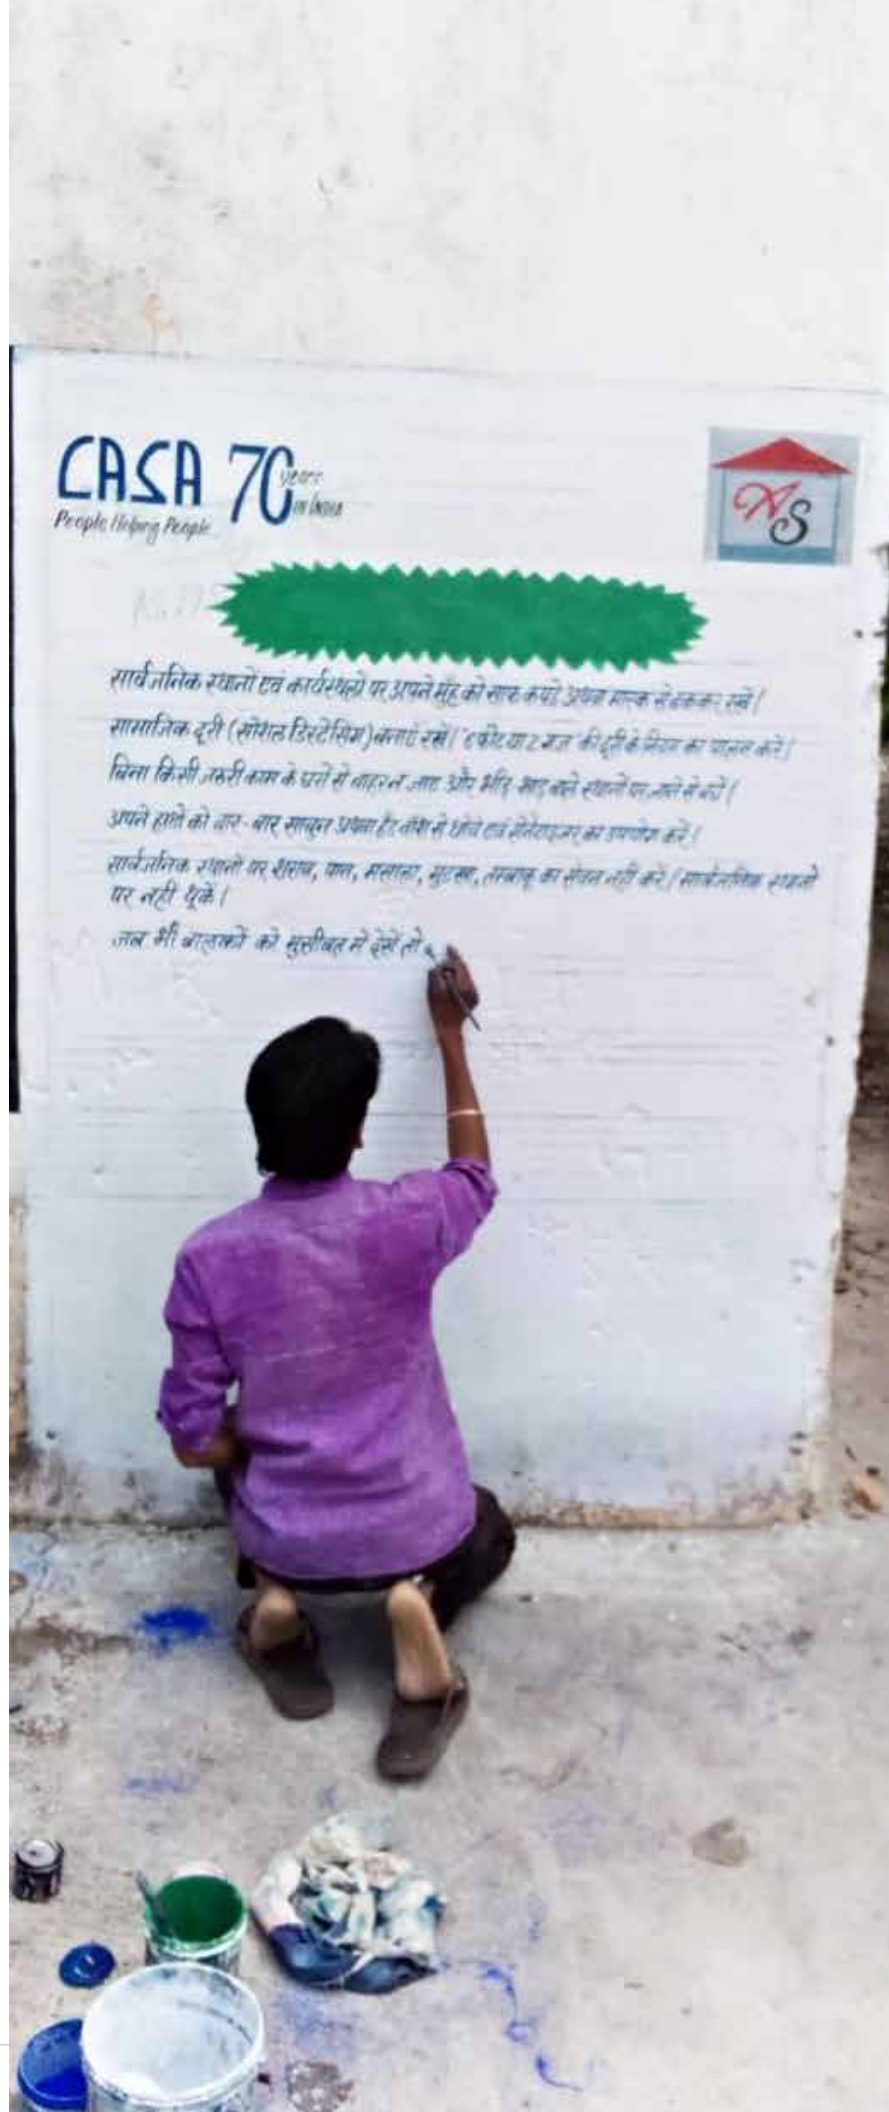 CASA 70 years
People Helping People IN INDIA
AS
सार्वजनिक स्थानों एवं कार्यस्थलों पर अपने मुँह को साफ कपड़े अथवा मास्क से ढककर रखें।
सामाजिक दूरी (सोशल डिस्टेंसिंग) बनाएं रखें। 6 फीट या 2 गज की दूरी के नियम का पालन करें।
बिना किसी जरूरी काम के घरों से बाहर न जाए और भीड़-भाड़ वाले स्थानों पर जाने से बचें।
अपने हाथों को बार-बार साबुन अथवा हैंड वॉश से धोयें एवं सेनेटाइजर का उपयोग करें।
सार्वजनिक स्थानों पर शराब, पान, मसाला, गुटखा, तम्बाकू का सेवन नहीं करें। सार्वजनिक स्थानों
पर नहीं थूकें।
जब भी बालकों को मुसीबत में देखें तो